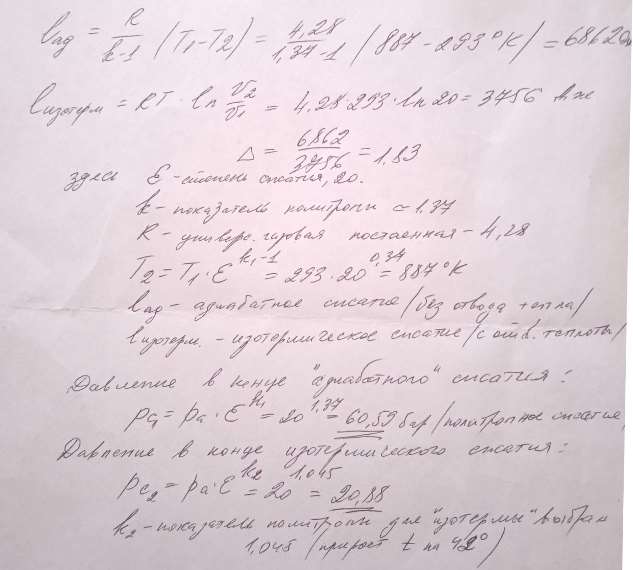 lад = R/(k-1) (T₁-T₂) = 4,28/(1,37-1) (887-293°K) = 6862 дж
lизотерм = RT · ln V₂/V₁ = 4.28·293·ln 20 = 3756 дж
Δ = 6862/3756 = 1,83
здесь Ɛ - степень сжатия, 20.
k - показатель политропы = 1.37
R - универс. газовая постоянная - 4,28
T₂ = T₁·Ɛ^(k₁-1) = 293·20^0,37 = 887°K
lад - адиабатное сжатие /без отвода тепла/
lизотерм. - изотермическое сжатие /с отв. теплоты/
Давление в конце "адиабатного" сжатия:
pc₁ = pa·Ɛ^k₁ = 20^1,37 = 60,59 бар /политропное сжатие/
Давление в конце изотермического сжатия:
pc₂ = pa·Ɛ^k₂ = 20^1,045 = 20,88
k₂ - показатель политропы для "изотермы" выбран
1,045 (прирост t на 42°)